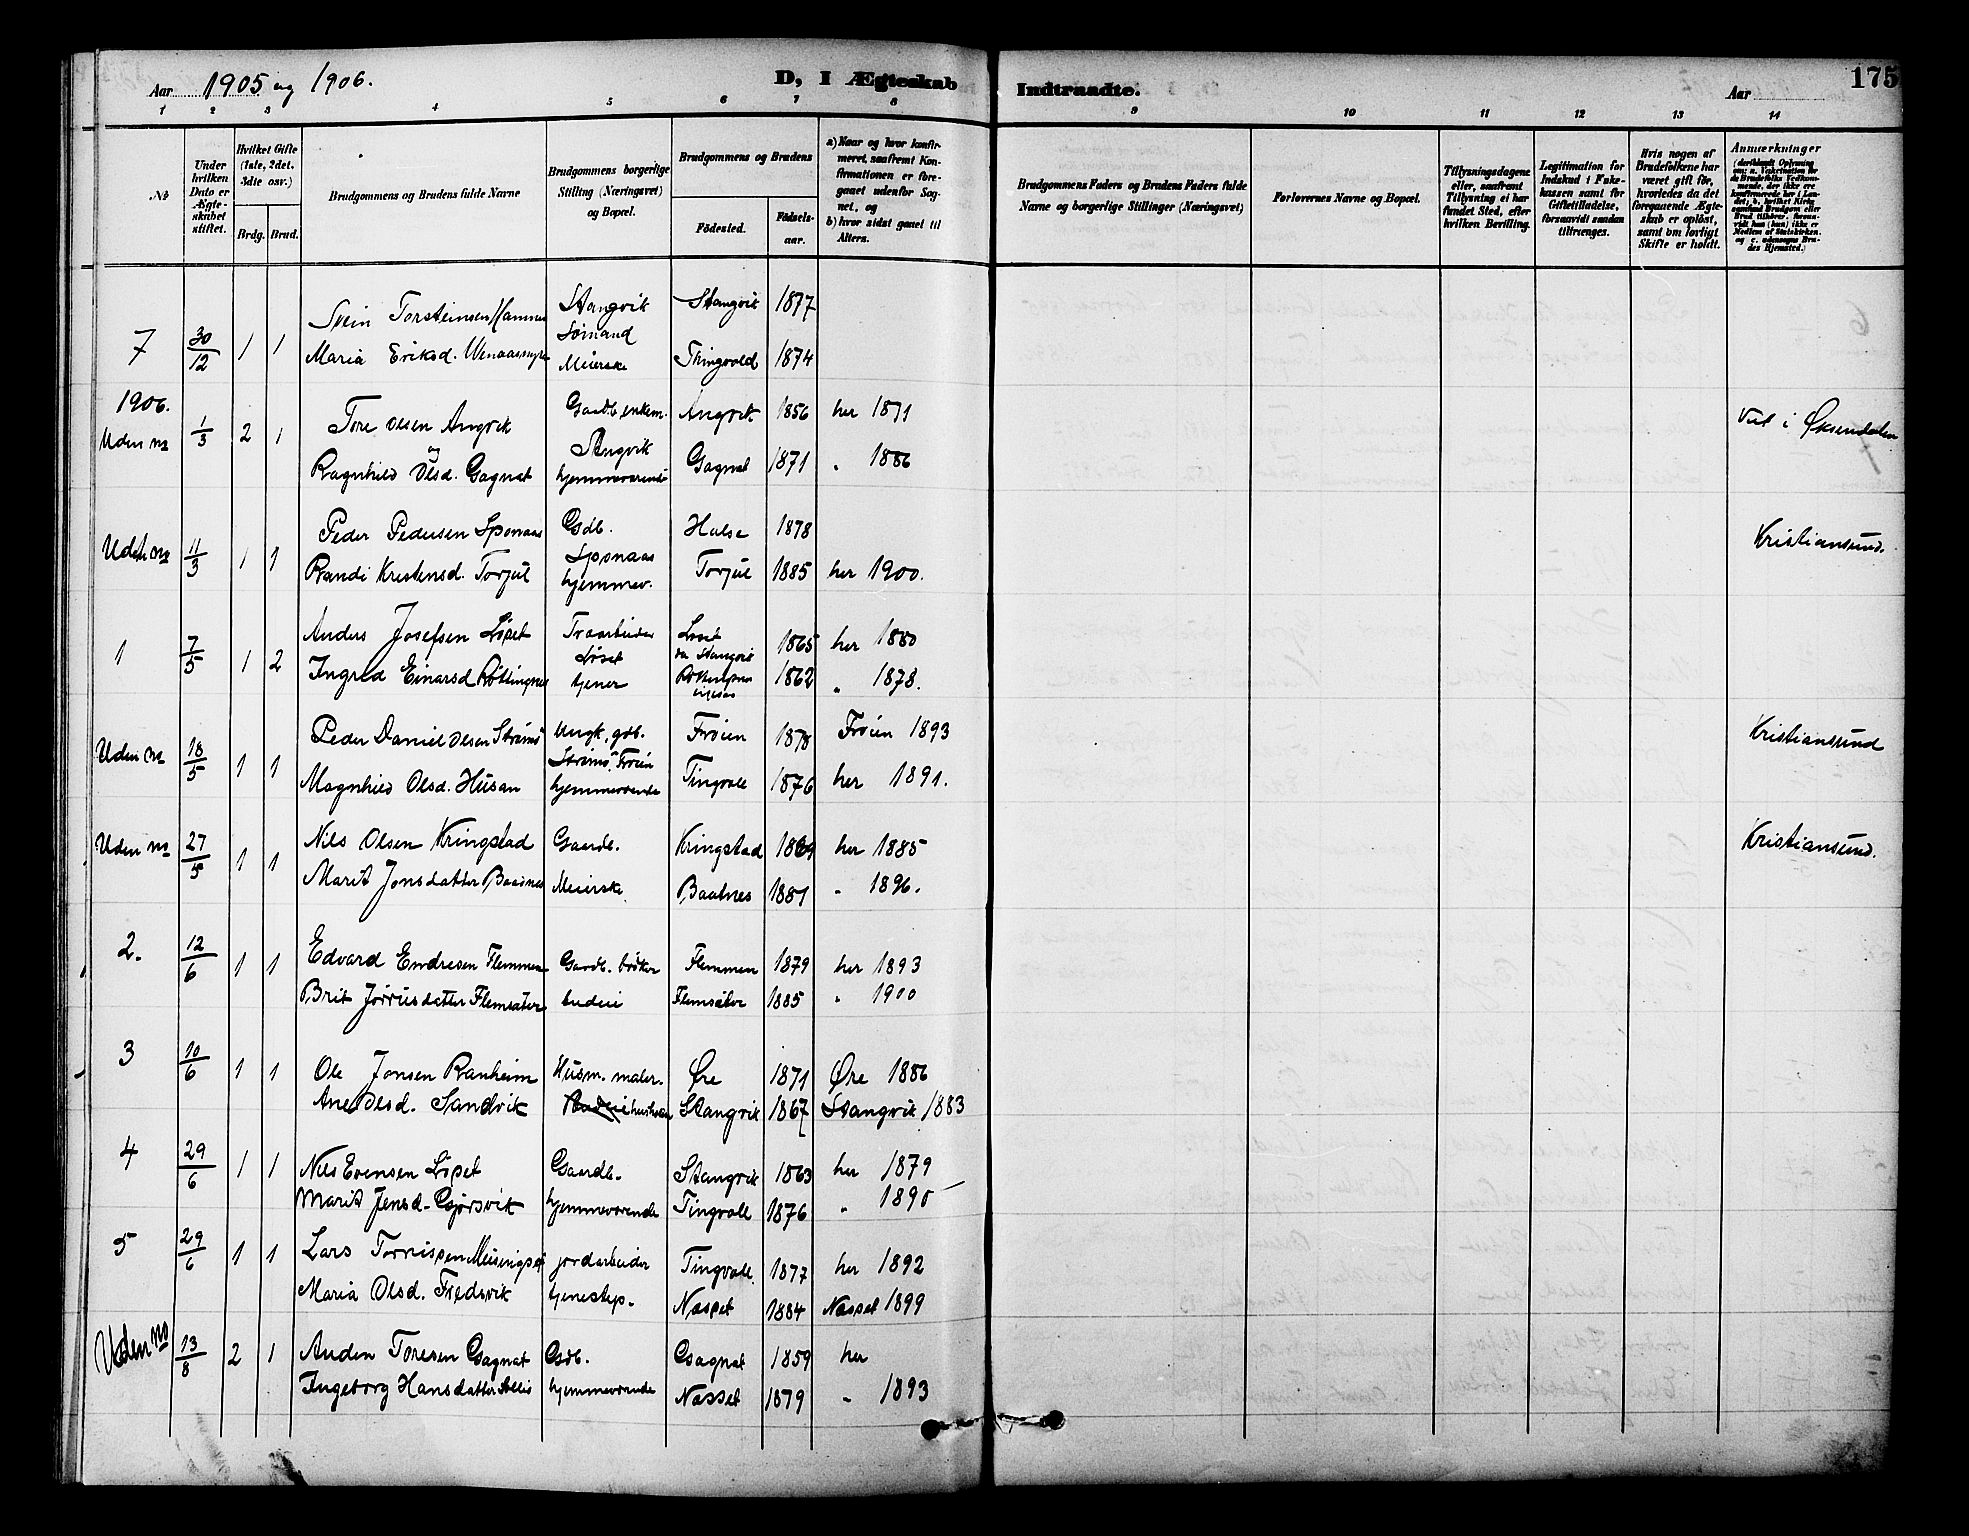 Aar 1905 og 1906.
D, I Ægteskab Indtraadte.
Aar
175
1 2 3 4 5 6 7 8 9 10 11 12 13 14
No
Under hvilken Dato er Ægteskabet stiftet.
Hvilket Gifte (1ste, 2det, 3die osv.)
Brdg. Brud.
Brudgommens og Brudens fulde Navne
Brudgommens borgerlige Stilling (Næringsvei) og Bopæl.
Brudgommens og Brudens
Födested. Födselsaar.
a) Naar og hvor konfirmeret, saafremt Konfirmationen er foregaaet udenfor Sognet, og
b) hvor sidst gaaet til Alters.
Brudgommens Faders og Brudens Faders fulde Navne og borgerlige Stillinger (Næringsvei)
Forlovernes Navne og Bopæl.
Tillysningsdagene eller, saafremt Tillysning ei har fundet Sted, efter hvilken Bevilling.
Legitimation for Indskud i Enkekassen samt for Giftetilladelse, forsaavidt saadan tiltrænges.
Hvis nogen af Brudefolkene har været gift för, hvorledes da det foregaaende Ægteskab er oplöst, samt om lovligt Skifte er holdt.
Anmærkninger
7 30/12 1 1 Svein Torsteinsen Hamnes Stangvik Sømand Stangvik 1877
Maria Eriksd. Meierske Thingvold 1874
1906.
Uden no 1/3 2 1 Tore Olsen Angvik Gaardb. enkem. Angvik 1856 her 1871 Viet i Øksendalen
og
Ragnhild Olsd. Gagnat Angvik hjemmeværende Gagnat 1871 " 1886
Uden no 11/3 1 1 Peder Pedersen Spornaas Gdb. Spornaas Halse 1878 Kristiansund.
Randi Kristensd. Torjul hjemmev. Torjul 1885 her 1900.
1 7/5 1 2 Anders Josefsen Løset Løset 1865 her 1880
Ingrid Einarsd Røttingnes tjener 1862 " 1878.
Uden no 18/5 1 1 Peder Daniel Olsen Strøms Ungk. gdb. Strøms, Frøien Frøien 1878 Frøien 1893 Kristiansund
Magnhild Olsd. Husan hjemmeværende Tingvoll 1876 her 1891.
Uden no 27/5 1 1 Nils Olsen Kringstad Gaardb. Kringstad 1869 her 1885 Kristiansund.
Marit Jonsdatter Baadnes Meierske Baalnes 1881 " 1896.
2. 12/6 1 1 Edvard Endresen Flemmen Gaardb. bøker Flemmen 1879 her 1893
Brit Flemsæter budeie Flemsæter 1885 " 1900
3 10/6 1 1 Ole Jonsen Ranheim Husm. maler. Øre 1871 Øre 1886
Ane Olsd. Sandvik Stangvik 1867 Stangvik 1883
4 29/6 1 1 Nils Evensen Løset Gaardb. Stangvik 1863 her 1879
Marit Jensd. Gjørsvik hjemmeværende Tingvoll 1876 " 1890
5 29/6 1 1 Lars Meisingset jordarbeider Tingvoll 1877 her 1892
Maria Olsd. Fredsvik tjenestep. Næsset 1884 Næsset 1899
Uden no 13/8 2 1 Auden Toresen Gagnat Gdb. Gagnat 1859 her
Ingeborg Hansdatter hjemmeværende Næsset 1879 " 1893